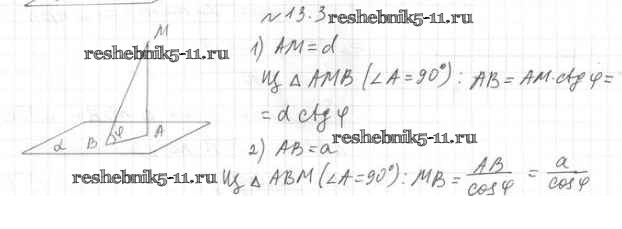 №13.3 reshebnik5-11.ru
M
reshebnik5-11.ru
1) AM = d
Из △ AMB (∠A = 90°) : AB = AM·ctg φ =
= d ctg φ
α B φ A
reshebnik5-11.ru
2) AB = a
reshebnik5-11.ru
Из △ ABM (∠A = 90°) : MB = AB/cos φ = a/cos φ